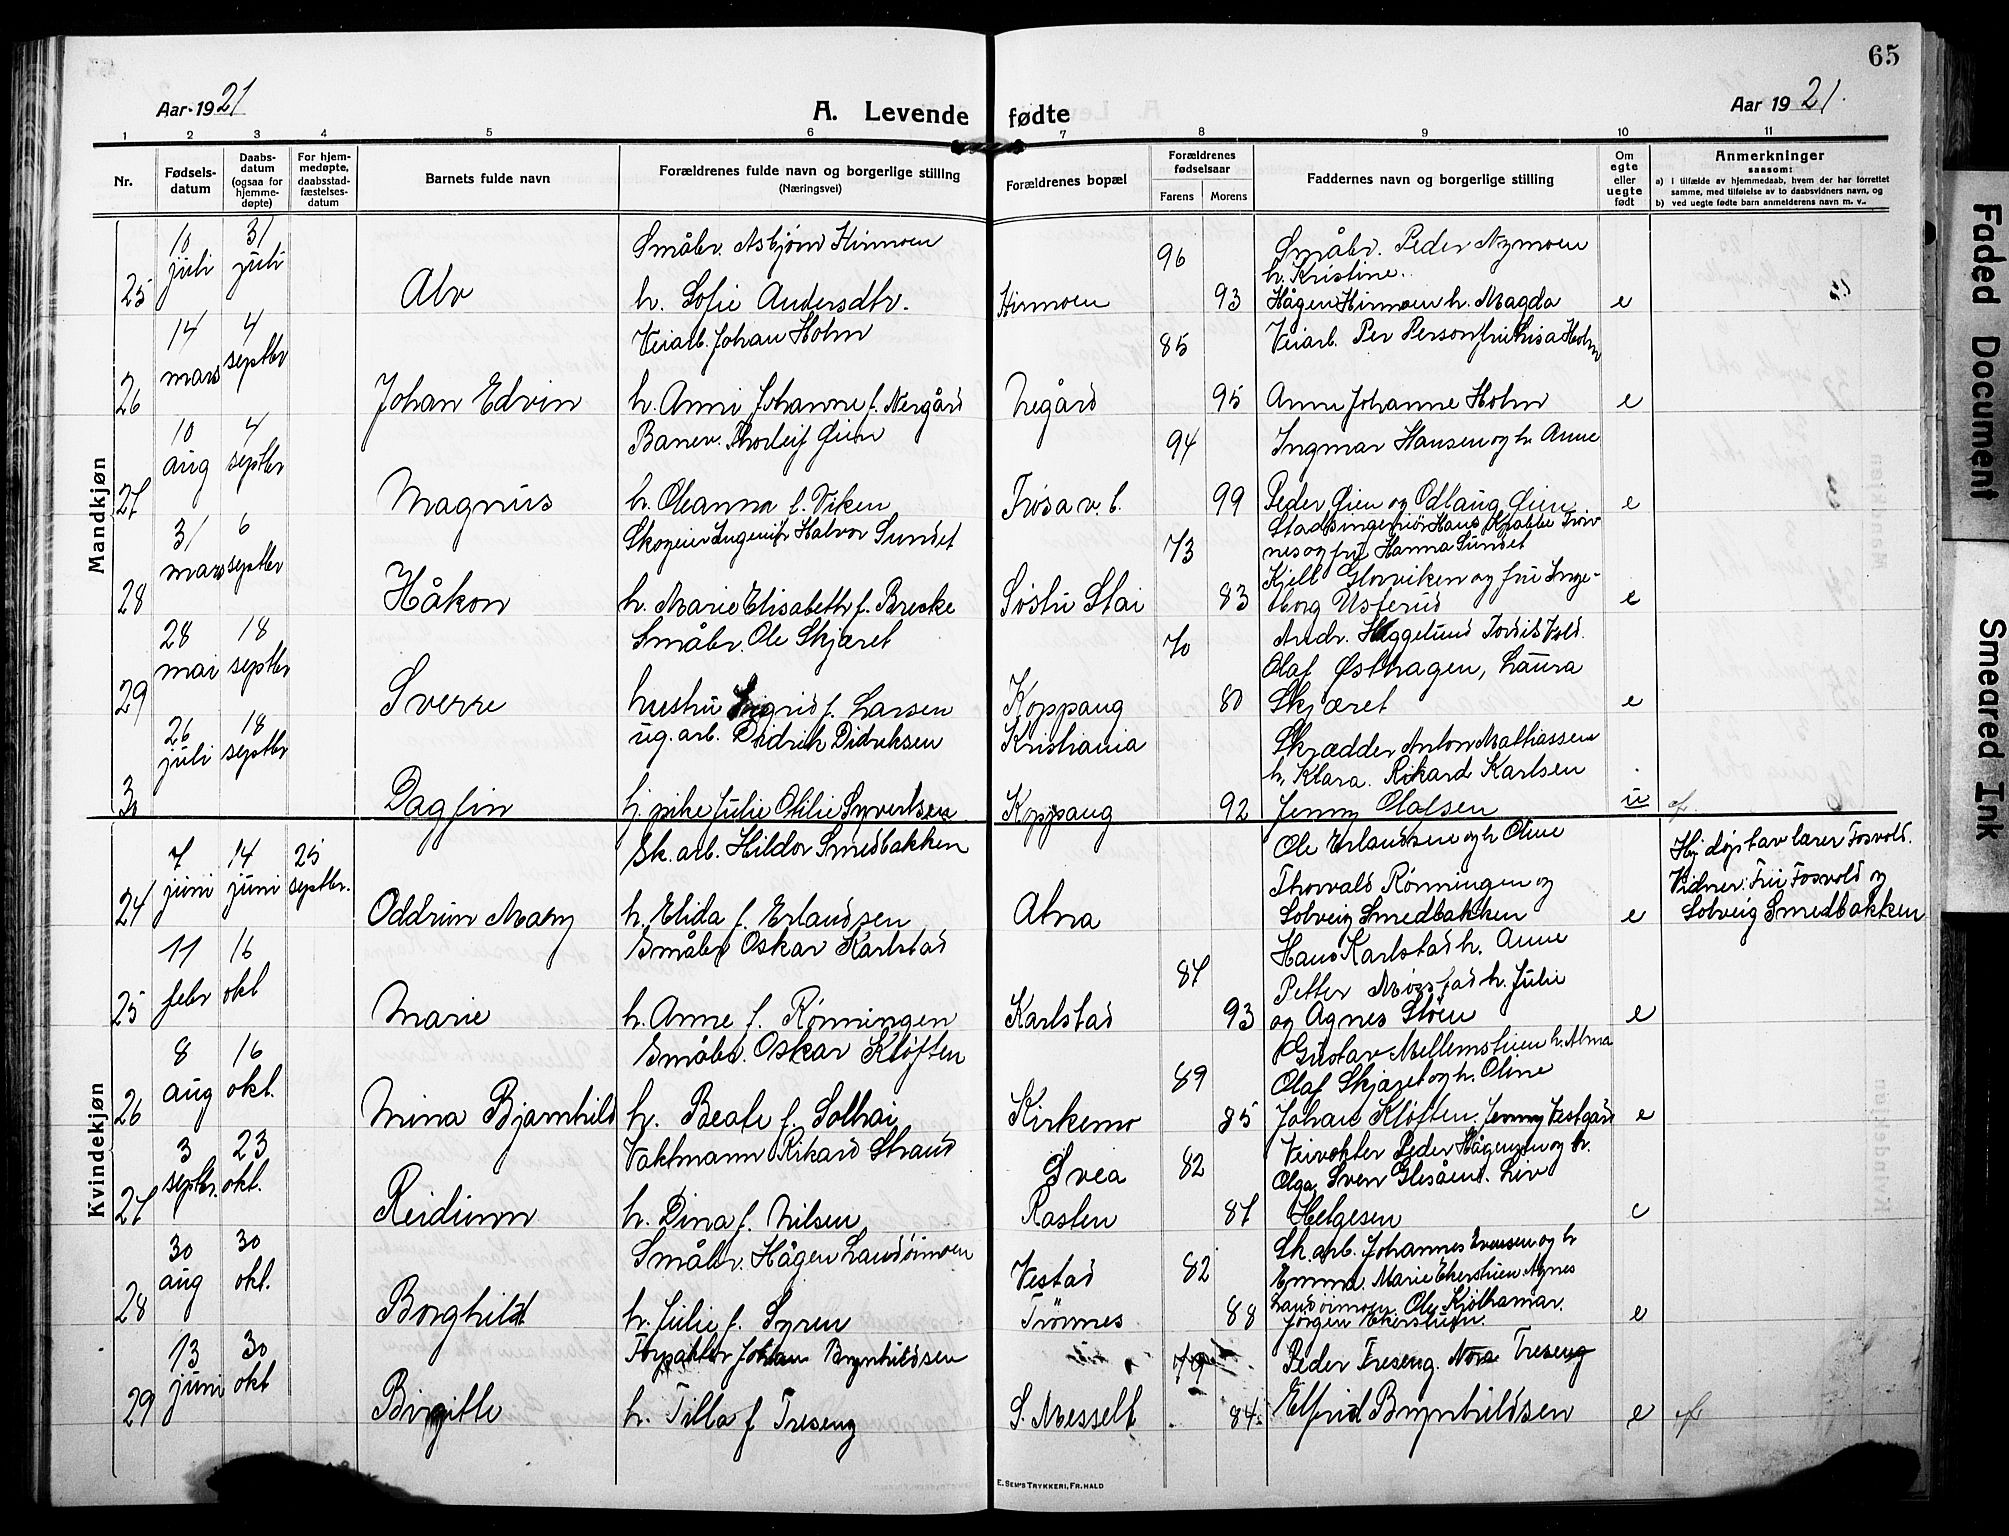 65
Aar 1921
A. Levende fødte
Aar 1921.
1 2 3 4 5 6 7 8 9 10 11
Nr.
Fødsels-
datum
Daabs-
datum
(ogsaa for
hjemme-
døpte)
For hjem-
medøpte,
daabsstad-
fæstelses-
datum
Barnets fulde navn
Forældrenes fulde navn og borgerlige stilling
(Næringsvei)
Forældrenes bopæl
Forældrenes
fødselsaar
Farens Morens
Faddernes navn og borgerlige stilling
Om
egte
eller
uegte
født
Anmerkninger
saasom:
a) I tilfælde av hjemmedaab, hvem der har forrettet
samme, med tilføielse av to daabsvidners navn, og
b) ved uegte fødte barn anmelderens navn m. v..
Mandkjøn
10 31 Småbr. Asbjørn Hirmoen 96 Småbr. Peder Nymoen
juli juli h. Kristine.
25 Alv h. Sofie Andersdtr. Hirmoen 93 Hågen Hirmoen h. Magda e
14 4 Veiarb. Johan Holm 85 Veiarb. Per Person fru Lisa Holm
mars septbr
26 Johan Edvin h. Anni Johanne f. Nergård Negård 95 Anne Johanne Holm e
10 4 Banev. Thorleif Øien 94 Ingmar Hansen og h. Anne
aug septbr
27 Magnus h. Oleanna f. Viken Trøsa v. b. 99 Peder Øien og Odlaug Øien e
31 6 Skogeier Ingeniør Halvor Sundet 73 Stadsingeniør Hans Krabbe
mars septbr nes og fru Hanna Sundet
28 Håkon h. Marie Elisabeth f. Breske Søstu Stai 83 Kjell Glorviken og fru Inge-
borg Usterud e
28 18 Småbr. Ole Skjæret 70 Andr. Heggelund Jordis Vold.
mai septbr Olaf Østhagen, Laura
29 Sverre hustru Sigrid f. Larsen Koppang 80 Skjæret e
26 18 ug. arb. Didrik Didriksen Kristiania Skrædder Anton Mathiassen
juli septbr h. Klara. Rikard Karlsen
30 Dagfin hj. pike Julie Otilie Syvertsen Koppang 92 Jenny Olafsen u
Kvindekjøn
7 14 25 Sk. arb. Hildor Smedbakken Ole Erlandsen og h. Oline Hj. døpt av lærer Fosvold.
juni juni septbr. Thorvald Rønningen og Vidner: Fru Fosvold og
24 Oddrun Mary h. Elida f. Erlandsen Atna Solveig Smedbakken e Solveig Smedbakken
11 16 Småbr Oskar Karlstad 87 Hans Karlstad h. Anne
febr okt Petter Møystad h. Julie
25 Marie h. Anne f. Rønningen Karlstad 93 og Agnes Støen e
8 16 Småbr. Oskar Kløften 89 Gustav Mellemstuen h. Alma
aug okt. Olaf Skjæret og h. Oline
26 Mina Bjarnhild h. Beate f. Solhai Kirkemo 85 Johan Kløften. Jenny Vestgård e
3 23 Vaktmann Rikard Strand Svea 82 Veivokter Peder Hågensen og h.
septbr. okt. Olga Sven Glesåen. Liv
27 Reidunn h. Dina f. Nilsen Rasten 87 Helgesen e
30 30 Småbr. Hågen Landsimoen Vestad 82 Sk. arb. Johannes Evensen og h
aug okt. Emma. Marie Ekerstuen Agnes
28 Borghild h. Julie f. Syren Trønnes 88 Landsimoen. Ole Kjølhamar.
Jørgen Ekerstuen. e
13 30 Forpakter Johan Brynhildsen 79 Peder Treseng. Nora Treseng
juni okt
29 Birgitte h. Tilla f Treseng S. Messelt 84 Elfrid Brynhildsen e
E. Sem's Trykkeri, Fr.hald
Faded Document
Smeared Ink